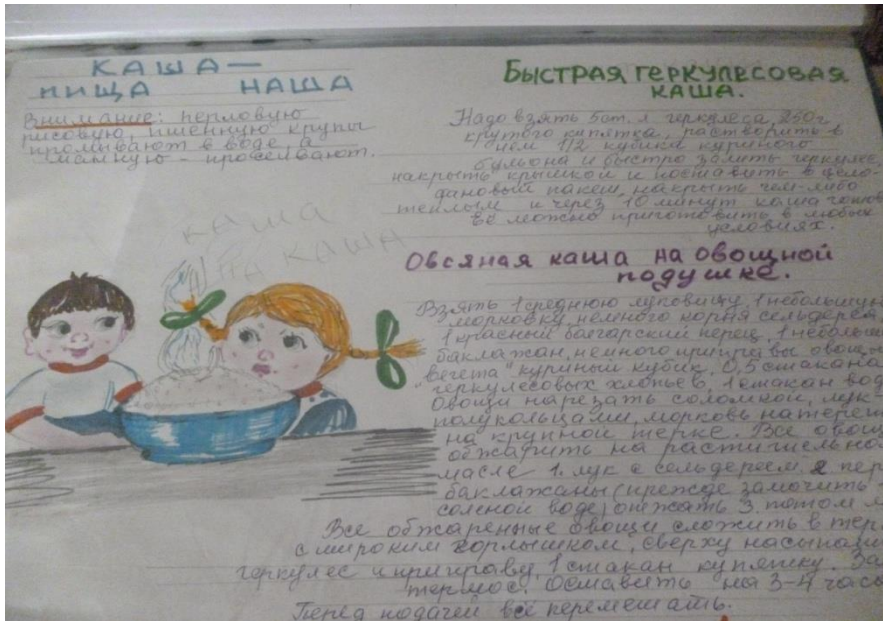 КАША —
ПИЩА НАША
Внимание: перловую
рисовую, пшенную крупы
промывают в воде, а
манную - просеивают.
каша
на каша
БЫСТРАЯ ГЕРКУЛЕСОВАЯ
КАША.
Надо взять 5 ст. л геркулеса, 250г
крутого кипятка, растворить в
нем 1/2 кубика куриного
бульона и быстро залить геркулес
накрыть крышкой и поставить в цело-
фановый пакет, накрыть чем-либо
теплым и через 10 минут каша готов
Её можно приготовить в любых
условиях.
Овсяная каша на овощной
подушке.
Взять 1 среднюю луковицу, 1 небольшую
морковку, немного корня сельдерея,
1 красный балгарский перец, 1 небольш
баклажан, немного приправы овощн
"Вегета" куриный кубик, 0,5 стакана
геркулесовых хлопьев, 1 стакан вод
Овощи нарезать соломкой, лук-
полукольцами, морковь натереть
на крупной терке. Все овощ
обжарить на растительно
масле 1. лук с сельдереем. 2 пер
баклажаны (прежде замочить
соленой воде) отжать 3. потом м
Все обжаренные овощи сложить в тер
с широким горлышком, сверху насыпа
геркулес и приправу, 1 стакан купятку. За
термос. Оставить на 3-4 часа
Перед подачей всё перемешать.